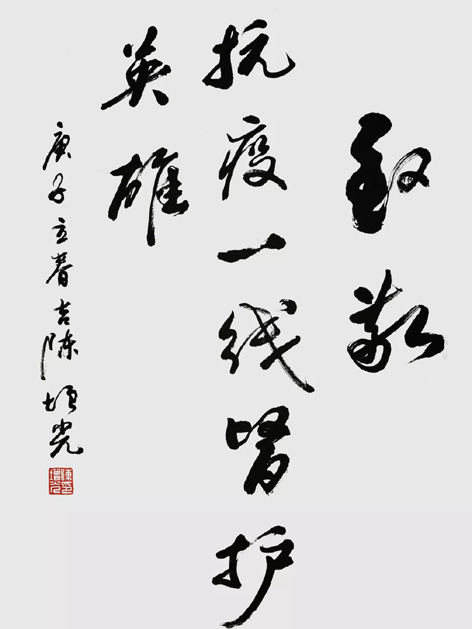 致敬
抗疫一线醫护
英雄
庚子立春吉陈光